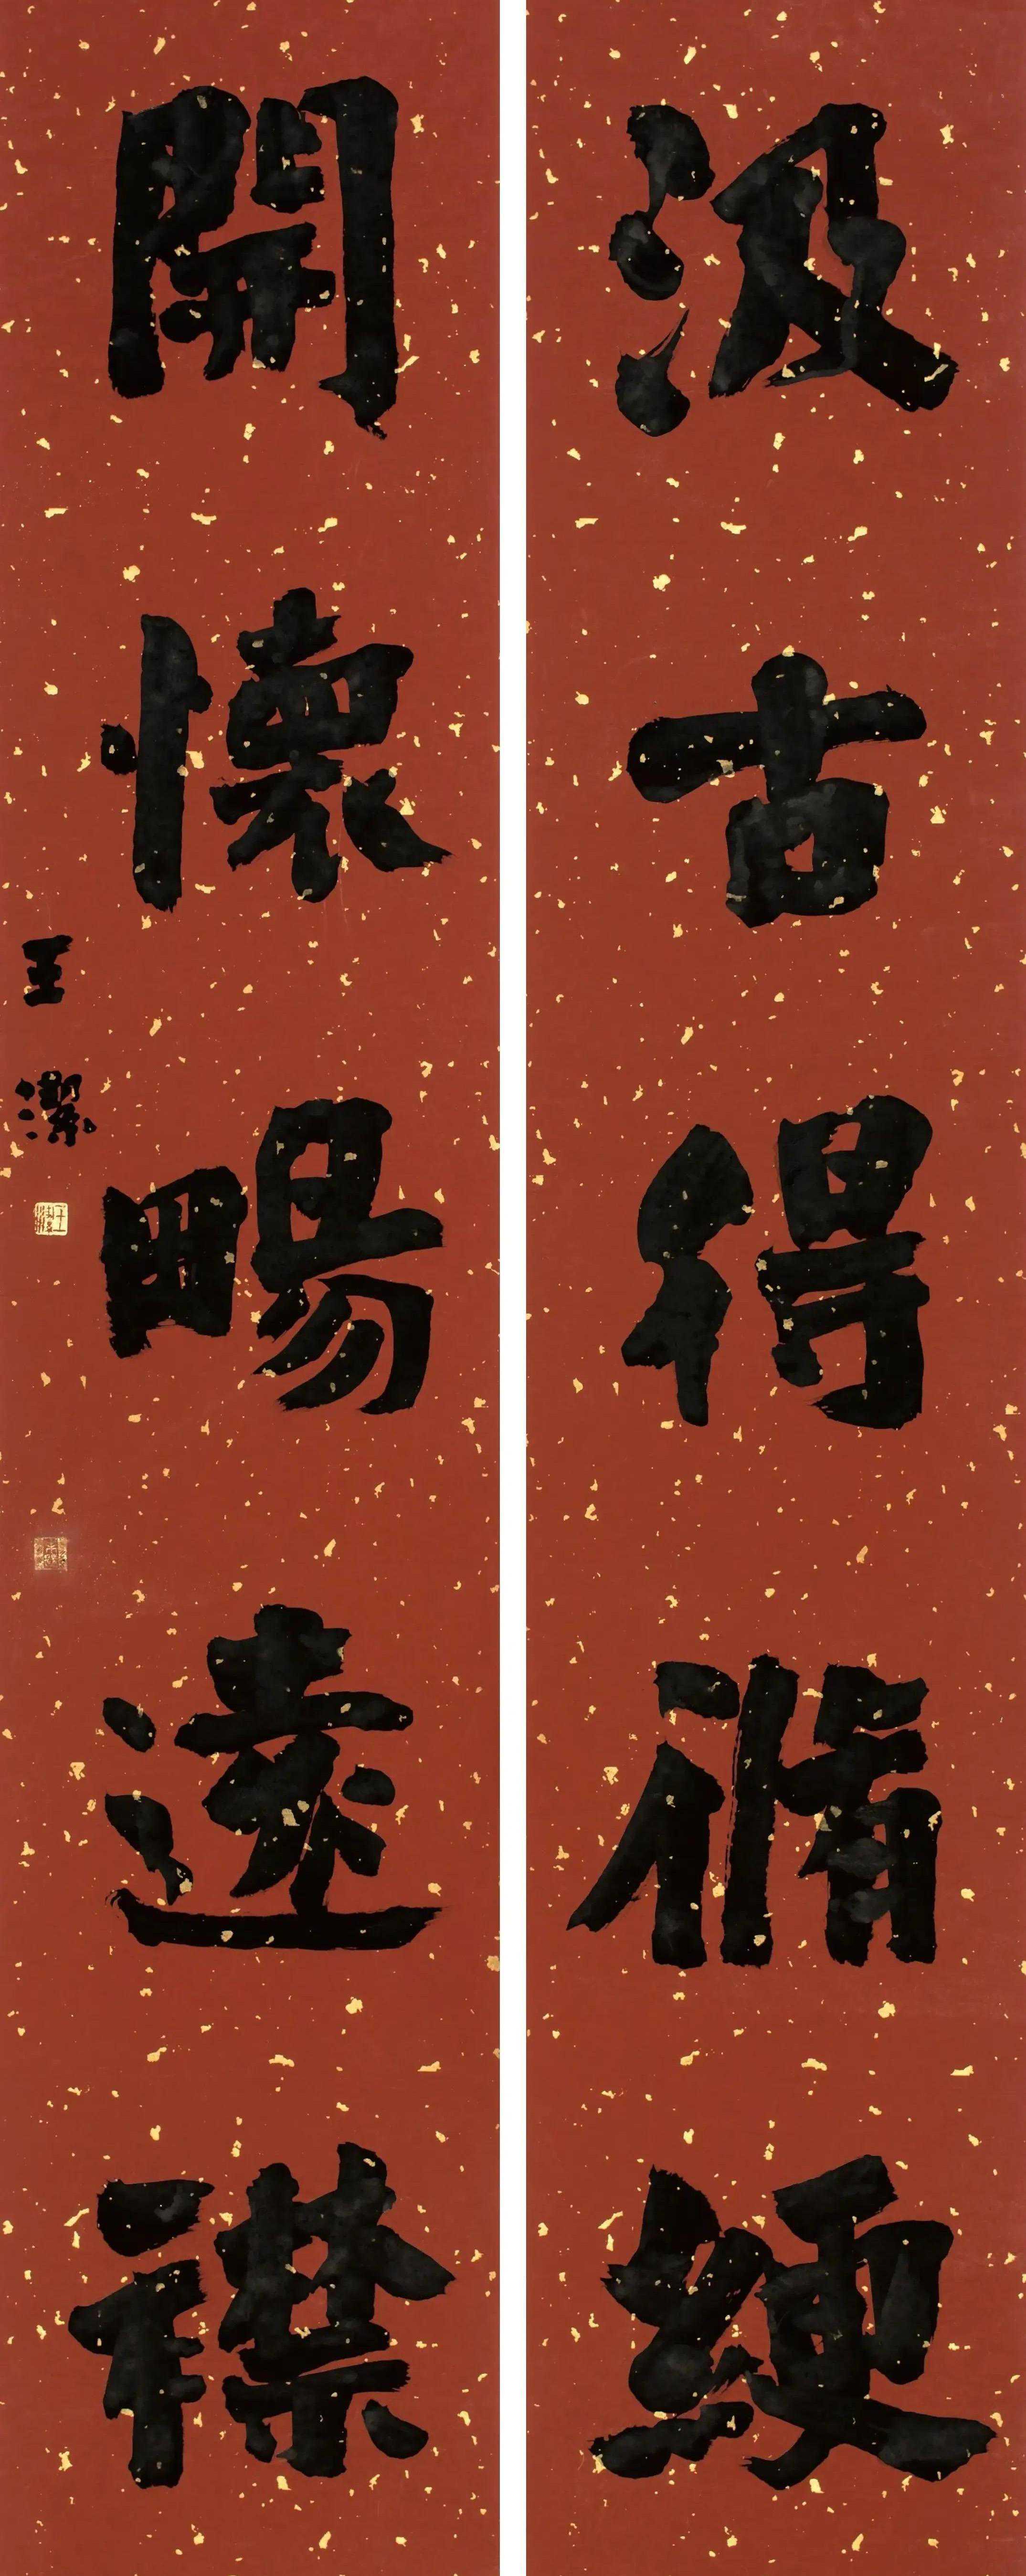 汲古得脩綆
開懷暢遠襟
王潔